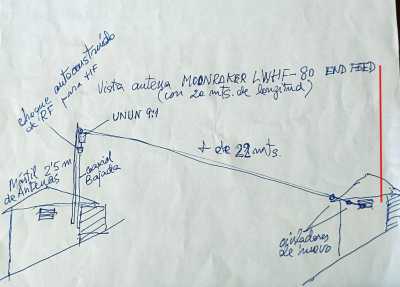 choque autoconstruido
de RF para HF
Vista antena MOONRAKER LWHF-80 END FEED
(con 20 mts. de longitud)
UNUN 9:1
+ de 22 mts.
Mástil 2'5 m
de Antenas
coaxial
Bajada
aisladores
de huevo